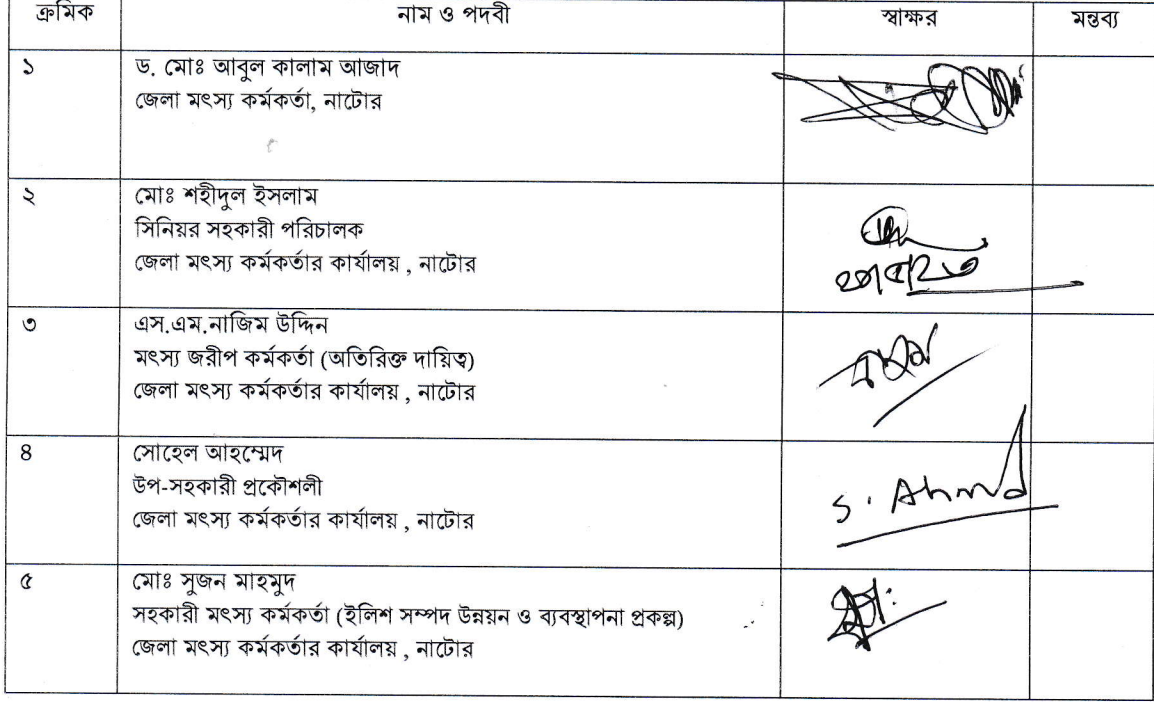 ক্রমিক নাম ও পদবী স্বাক্ষর মন্তব্য
১ ড. মোঃ আবুল কালাম আজাদ
জেলা মৎস্য কর্মকর্তা, নাটোর
২ মোঃ শহীদুল ইসলাম
সিনিয়র সহকারী পরিচালক
জেলা মৎস্য কর্মকর্তার কার্যালয় , নাটোর
৩ এস.এম.নাজিম উদ্দিন
মৎস্য জরীপ কর্মকর্তা (অতিরিক্ত দায়িত্ব)
জেলা মৎস্য কর্মকর্তার কার্যালয় , নাটোর
৪ সোহেল আহম্মেদ
উপ-সহকারী প্রকৌশলী
জেলা মৎস্য কর্মকর্তার কার্যালয় , নাটোর
S. Ahmed
৫ মোঃ সুজন মাহমুদ
সহকারী মৎস্য কর্মকর্তা (ইলিশ সম্পদ উন্নয়ন ও ব্যবস্থাপনা প্রকল্প)
জেলা মৎস্য কর্মকর্তার কার্যালয় , নাটোর